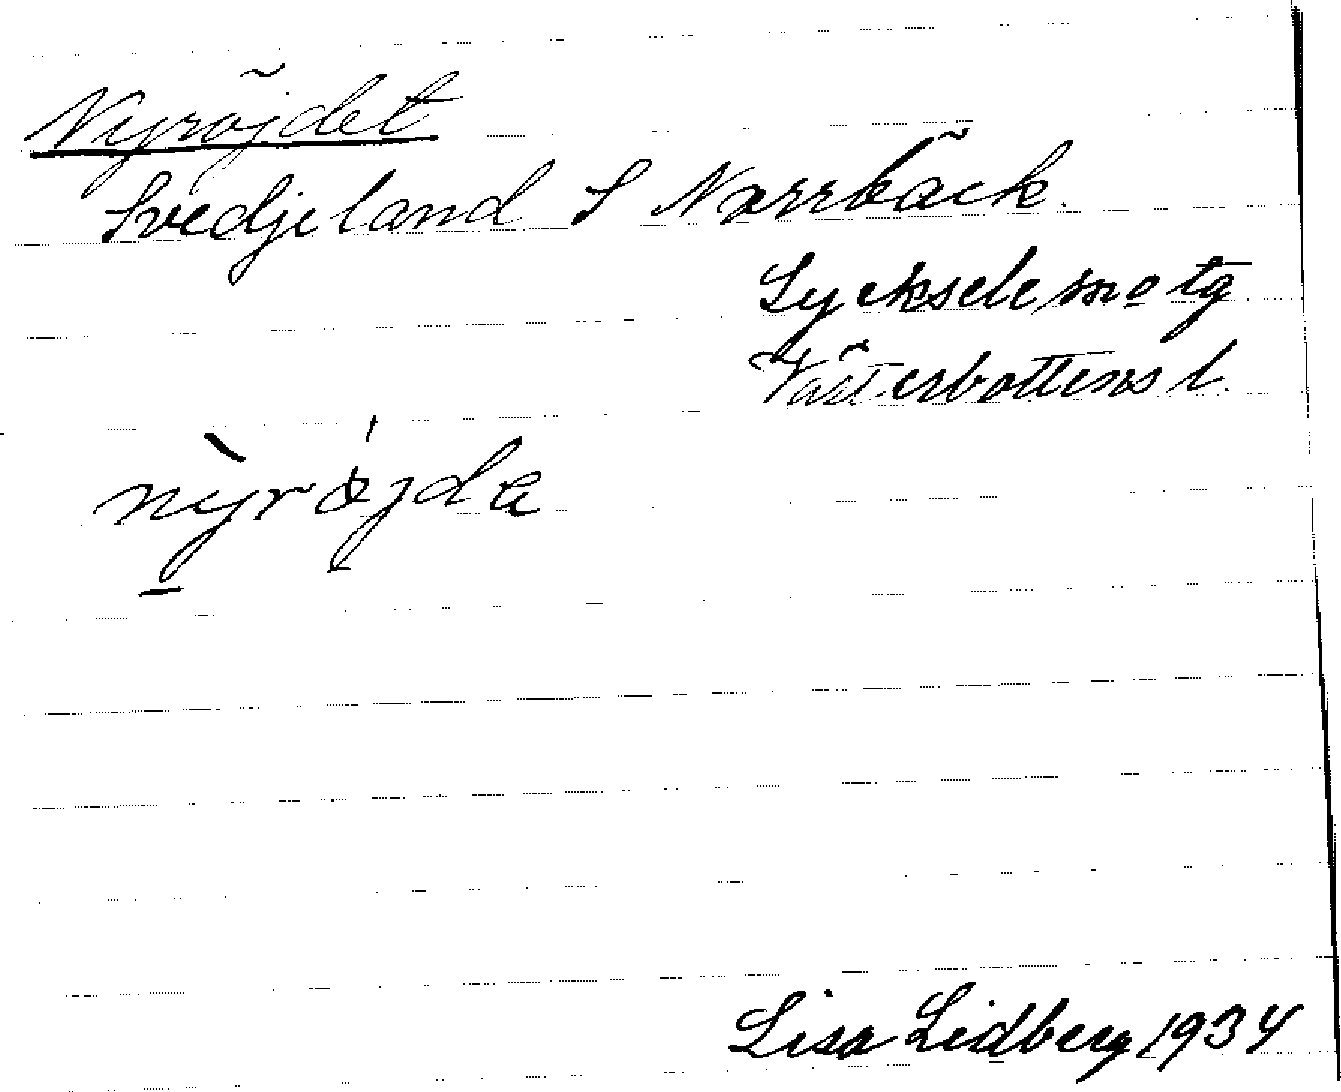 Nyröjdet
Svedjeland S Norrbäck.
Lycksele sn o tg
Västerbottens l.
nỳrǿjda
Lisa Lidberg 1934